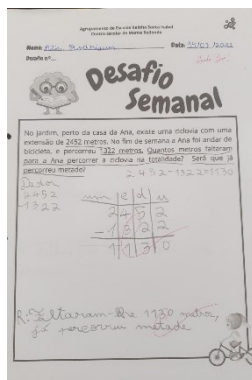 Agrupamento de Escolas
Nome: Ana Rodrigues Data: 14/03/2022
Desafio nº
Desafio
Semanal
No jardim, perto da casa da Ana, existe uma ciclovia com uma
extensão de 2452 metros. No fim de semana a Ana foi andar de
bicicleta, e percorreu 1322 metros. Quantos metros faltaram
para a Ana percorrer a ciclovia na totalidade? Será que já
percorreu metade? 2452-1322=1130
Dados
2452
-1322
um c d u
2452
-1322
1130
R: Faltaram-lhe 1130 metros,
já percorreu metade